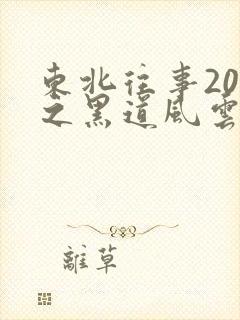 東北往事20
之黑道風雲
離草